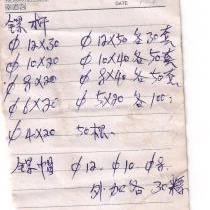 DATE
螺杆
φ12×30 φ12×50 各30套
φ10×20 φ10×40 各50套
φ8×20 φ8×40 50套
φ6×20 φ5×20 各100:
φ4×20 50根、
螺帽 φ12、φ10 φ8
另加各30